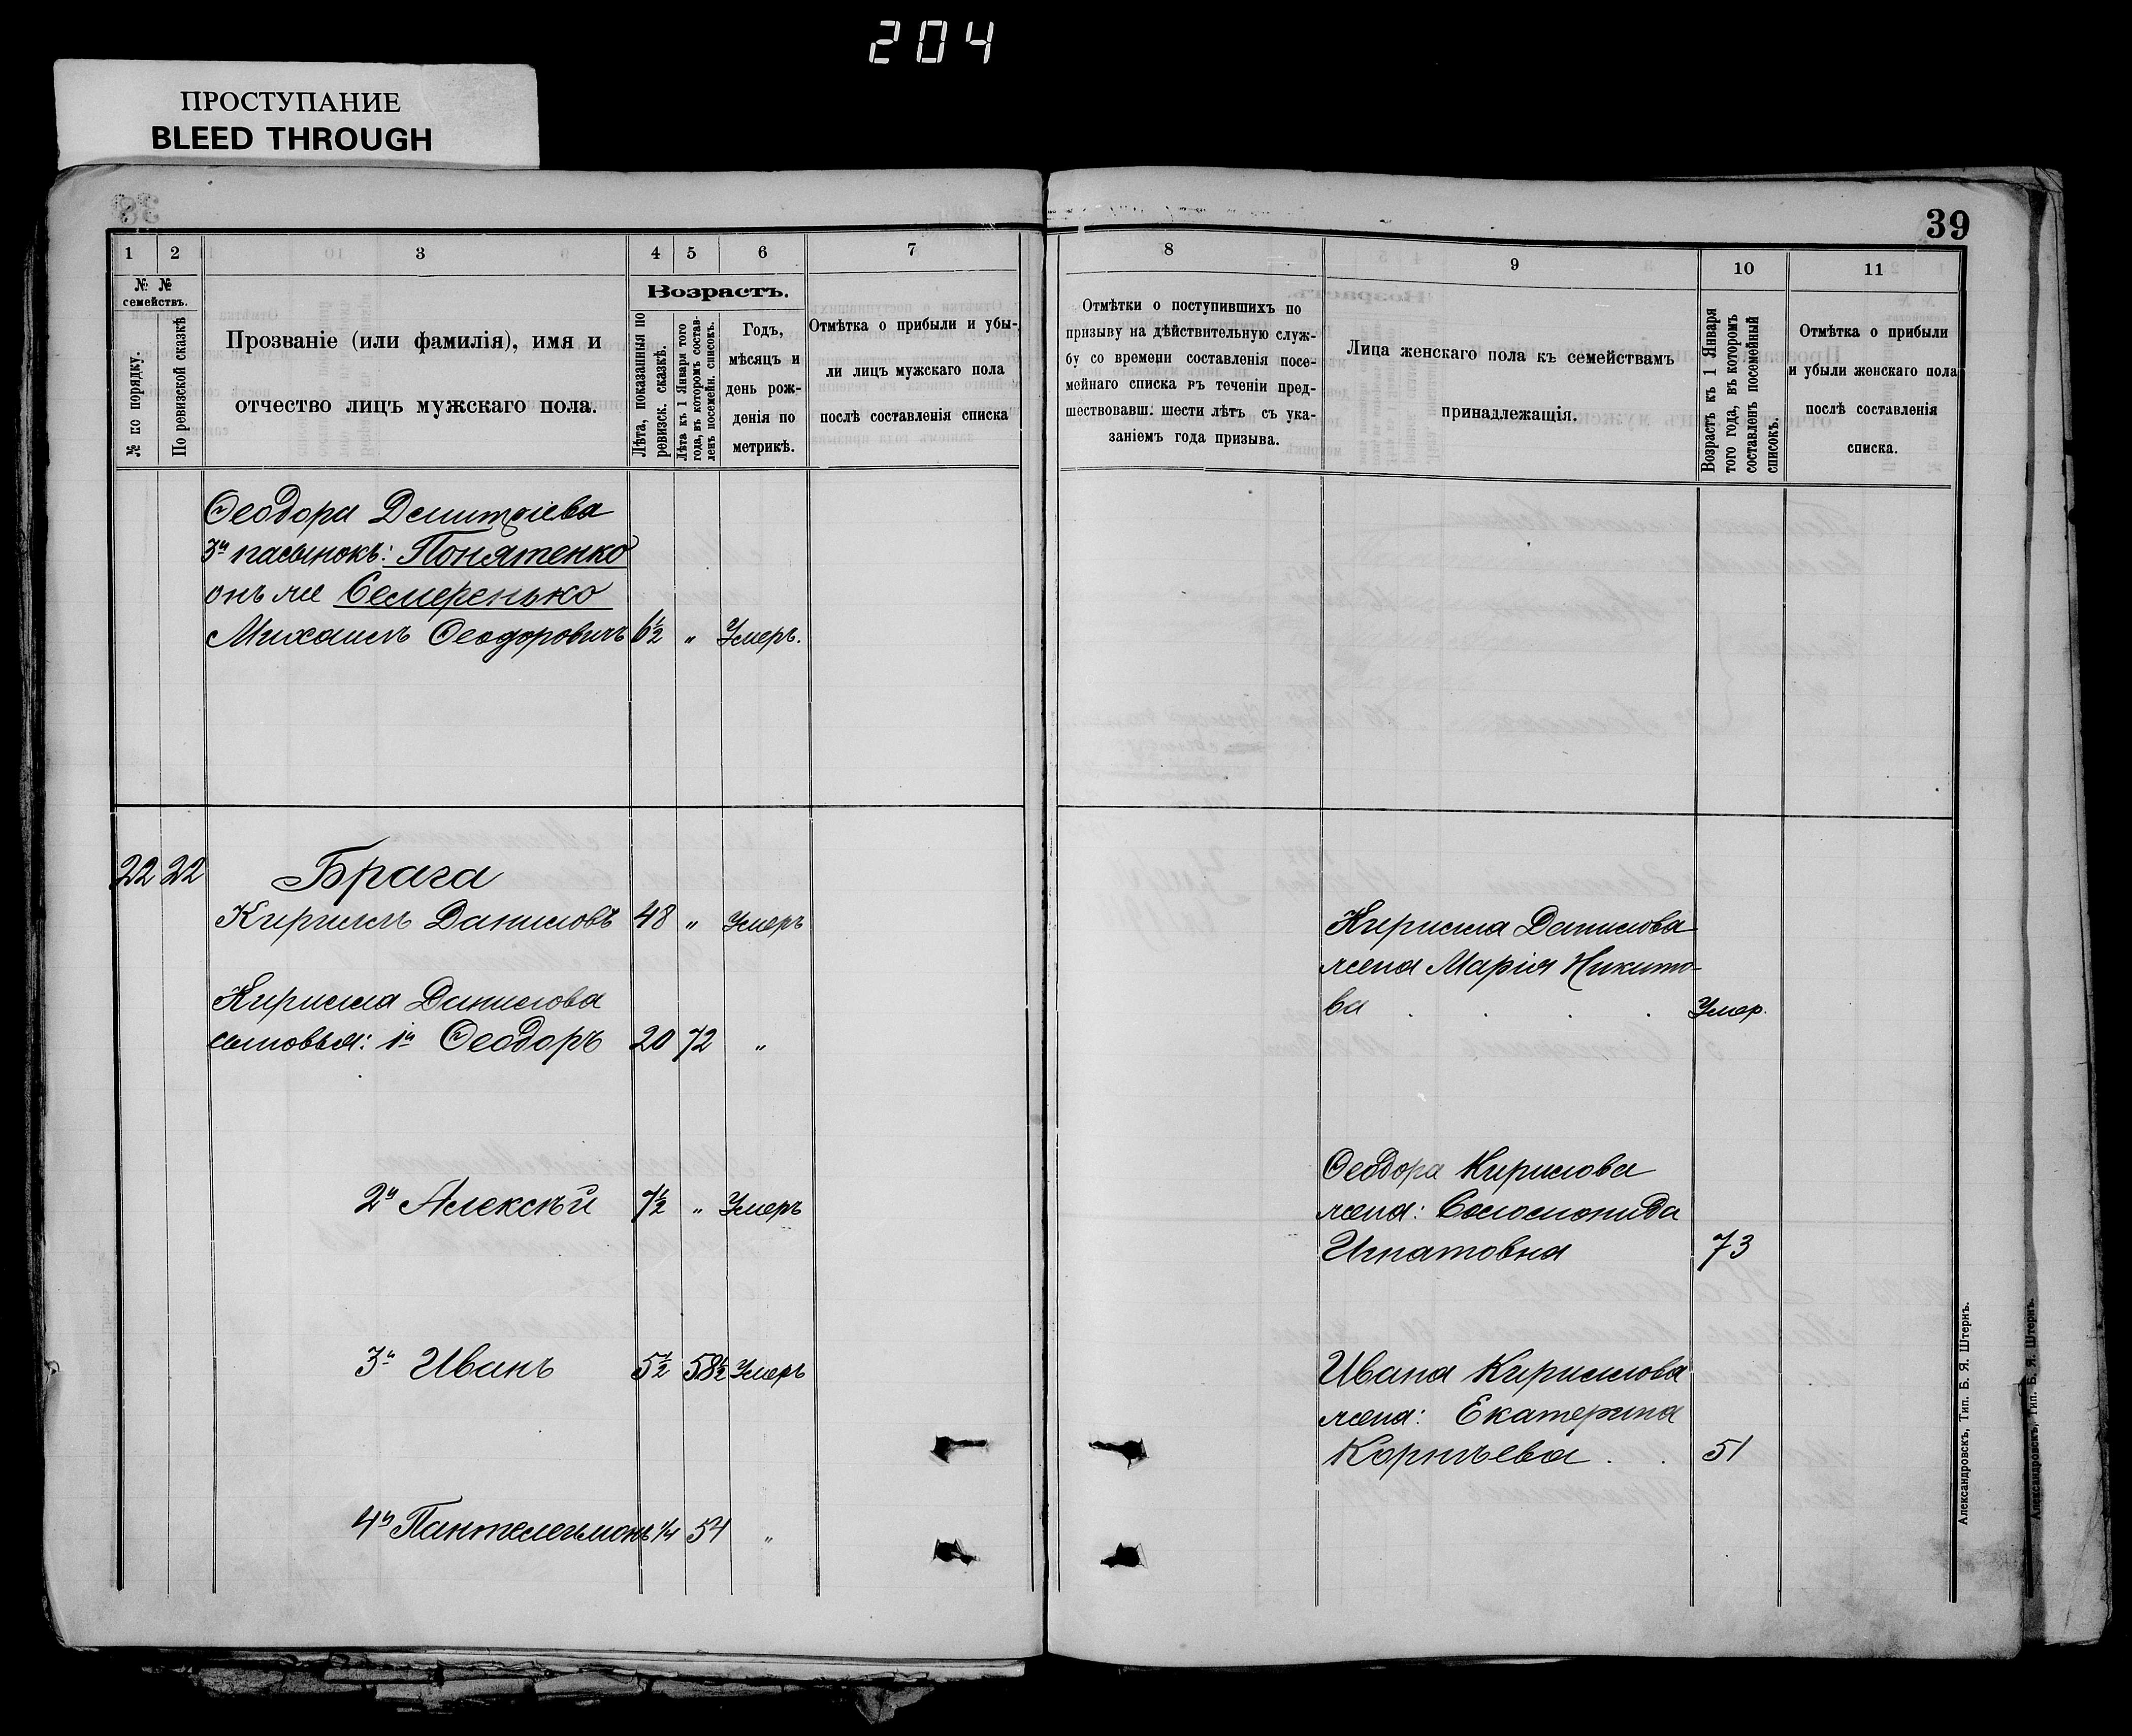 204
ПРОСТУПАНИЕ
BLEED THROUGH
39
1 2 3 4 5 6 7
№ № семействъ.
№ по порядку.
По ревизской сказкѣ
Прозваніе (или фамилія), имя и
отчество лицъ мужскаго пола.
Возрастъ.
Лѣта, показанныя по
ревизск. сказкѣ.
Лѣта къ 1 Января того
года, въ которомъ состав-
ленъ посемейн. списокъ.
Годъ,
мѣсяцъ и
день рож-
денія по
метрикѣ.
Отмѣтка о прибыли и убы-
ли лицъ мужскаго пола
послѣ составленія списка
Ѳеодора Демитріева
3й пасынокъ: Понятенко
онъ же Семеренько
Михаилъ Ѳеодоровичъ 6½ " Умеръ.
22 22 Брага
Кириллъ Даниловъ 48 " Умеръ
Кирилла Данилова
сыновья: 1й Ѳеодоръ 20 72 "
2й Алексѣй 7½ " Умеръ
3й Иванъ 5½ 58½ Умеръ
4й Пантелеѣмонъ ¼ 54 "
8 9 10 11
Отмѣтки о поступившихъ по
призыву на дѣйствительную служ-
бу со времени составленія посе-
мейнаго списка въ теченіи пред-
шествовавш. шести лѣтъ съ ука-
заніемъ года призыва.
Лица женскаго пола къ семействамъ
принадлежащія.
Возрастъ къ 1 Января
того года, въ которомъ
составленъ посемейный
списокъ.
Отмѣтка о прибыли
и убыли женскаго пола
послѣ составленія
списка.
Кирилла Данилова
жена Марія Никито-
ва . . . . Умер.
Ѳеодора Кирилова
жена: Соломонида
Игнатовна 73
Ивана Кириллова
жена: Екатерина
Корнѣева . . 51
Александровскъ, Тип. Б. Я. Штернъ.
Александровскъ, Тип. Б. Я. Штернъ.